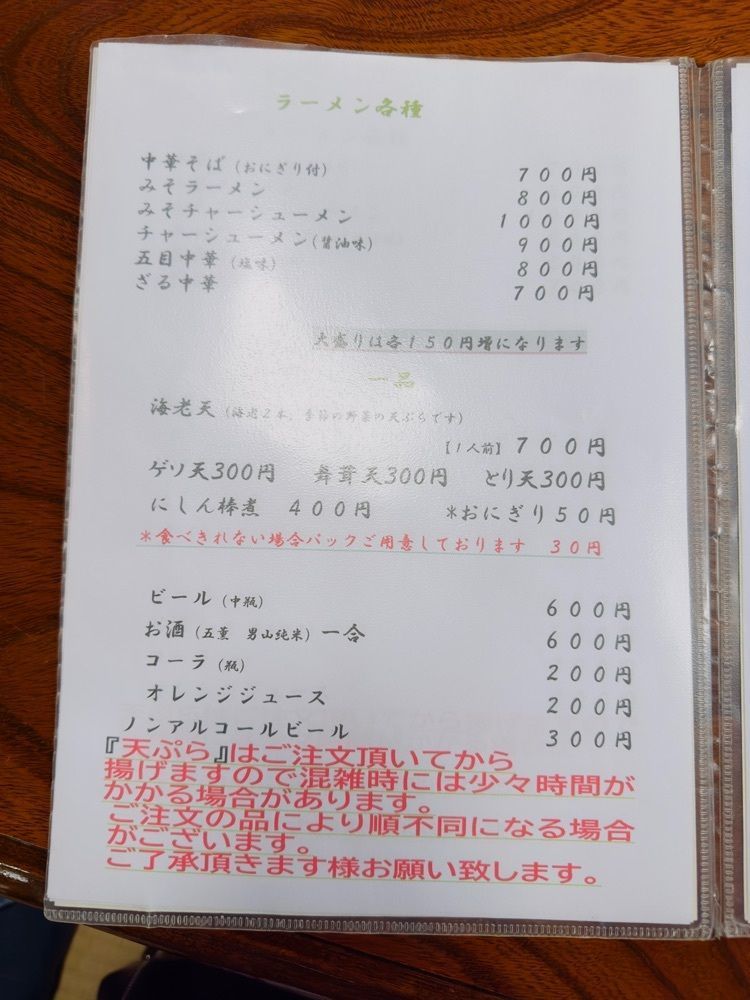 ラーメン各種
中華そば(おにぎり付) 700円
みそラーメン 800円
みそチャーシューメン 1000円
チャーシューメン(醤油味) 900円
五目中華(塩味) 800円
ざる中華 700円
大盛りは各150円増になります
一品
海老天(海老2本、季節の野菜の天ぷらです)
【1人前】700円
ゲソ天300円 舞茸天300円 とり天300円
にしん棒煮 400円 *おにぎり50円
*食べきれない場合パックご用意しております 30円
ビール(中瓶) 600円
お酒(五薫 男山純米)一合 600円
コーラ(瓶) 200円
オレンジジュース 200円
ノンアルコールビール 300円
『天ぷら』はご注文頂いてから
揚げますので混雑時には少々時間が
かかる場合があります。
ご注文の品により順不同になる場合
がございます。
ご了承頂きます様お願い致します。